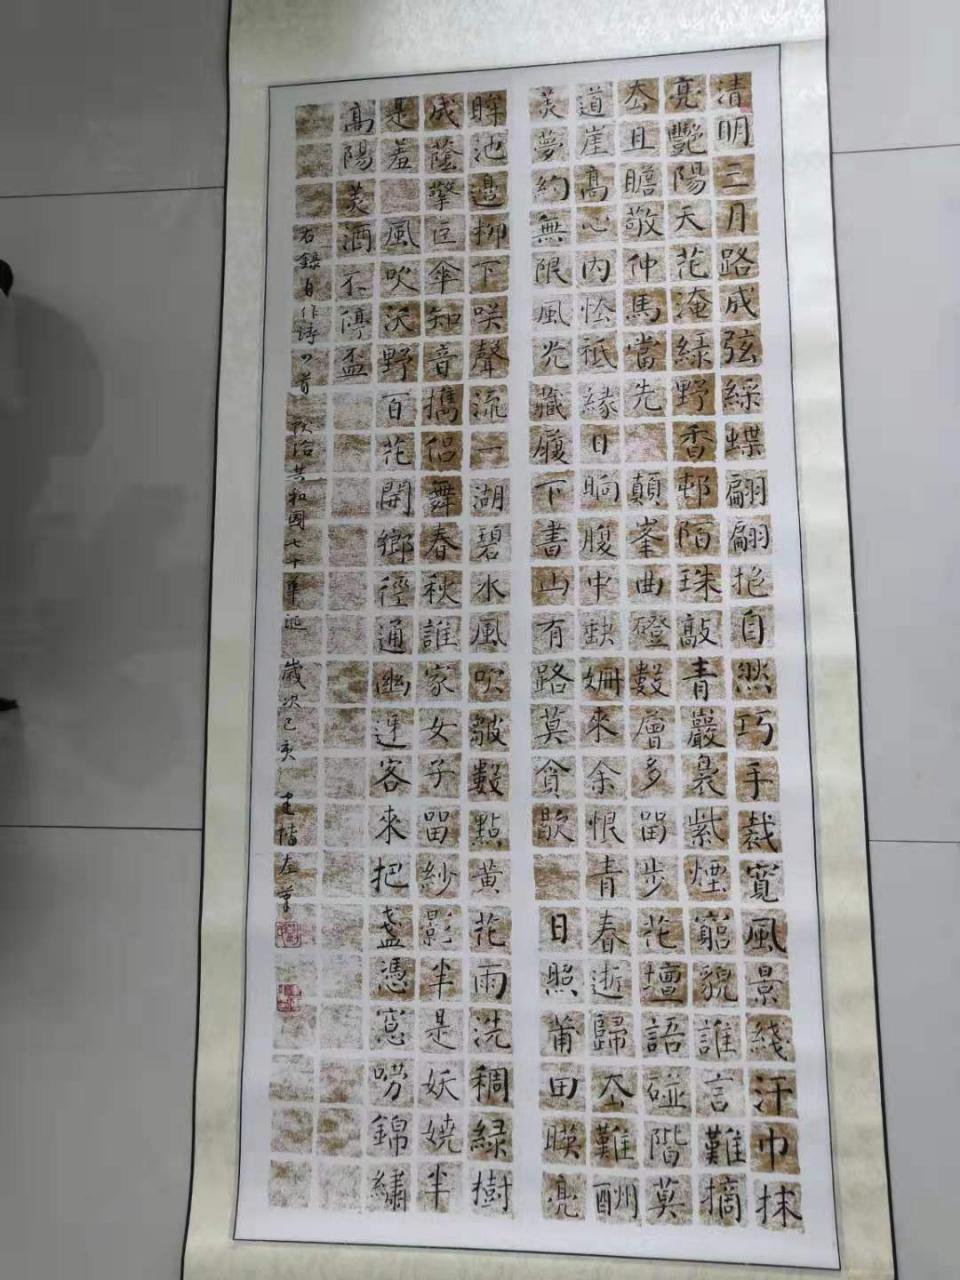 清明三月路成弦綵蝶翩翩抱自然巧手裁寬風景綫汗巾抹
亮艷陽天花淹綠野香邨陌珠敲青巖裊紫煙窮貌誰言難摘
厺且瞻敬仲馬當先顛峯曲磴數層多留步花壇語碰階莫
道崖高心内怆祗緣日晌腹中缺姍來余恨青春逝歸厺難酬
美夢約無限風光藏履下書山有路莫貪歇日照莆田暎亮
眸池邉柳下咲聲流一湖碧水風吹皺數點黄花雨洗稠綠樹
成蔭擎巨傘知音攜侣舞春秋誰家女子留紗影半是妖嬈半
是羞風吹沃野百花開鄉徑通幽迓客來把盞憑窓嘮錦繡
高陽美酒不停盃
右録自作詩首欣洽共和國七十華诞歲次己亥楷左筆